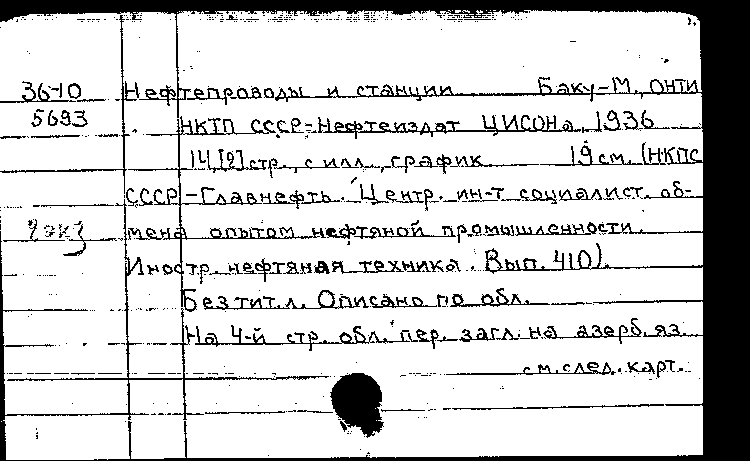 36-10 Нефтепроводы и станции Баку-М., ОНТИ
5693 НКТП СССР-Нефтеиздат ЦИСОНа, 1936
14,[2] стр., с илл., график. 19 см. (НКПС
СССР-Главнефть. Центр. ин-т социалист. об-
2 экз мена опытом нефтяной промышленности.
Иностр. нефтяная техника. Вып. 410).
Без тит. л. Описано по обл.
На 4-й стр. обл. пер. загл. на азерб. яз.
см. след. карт.